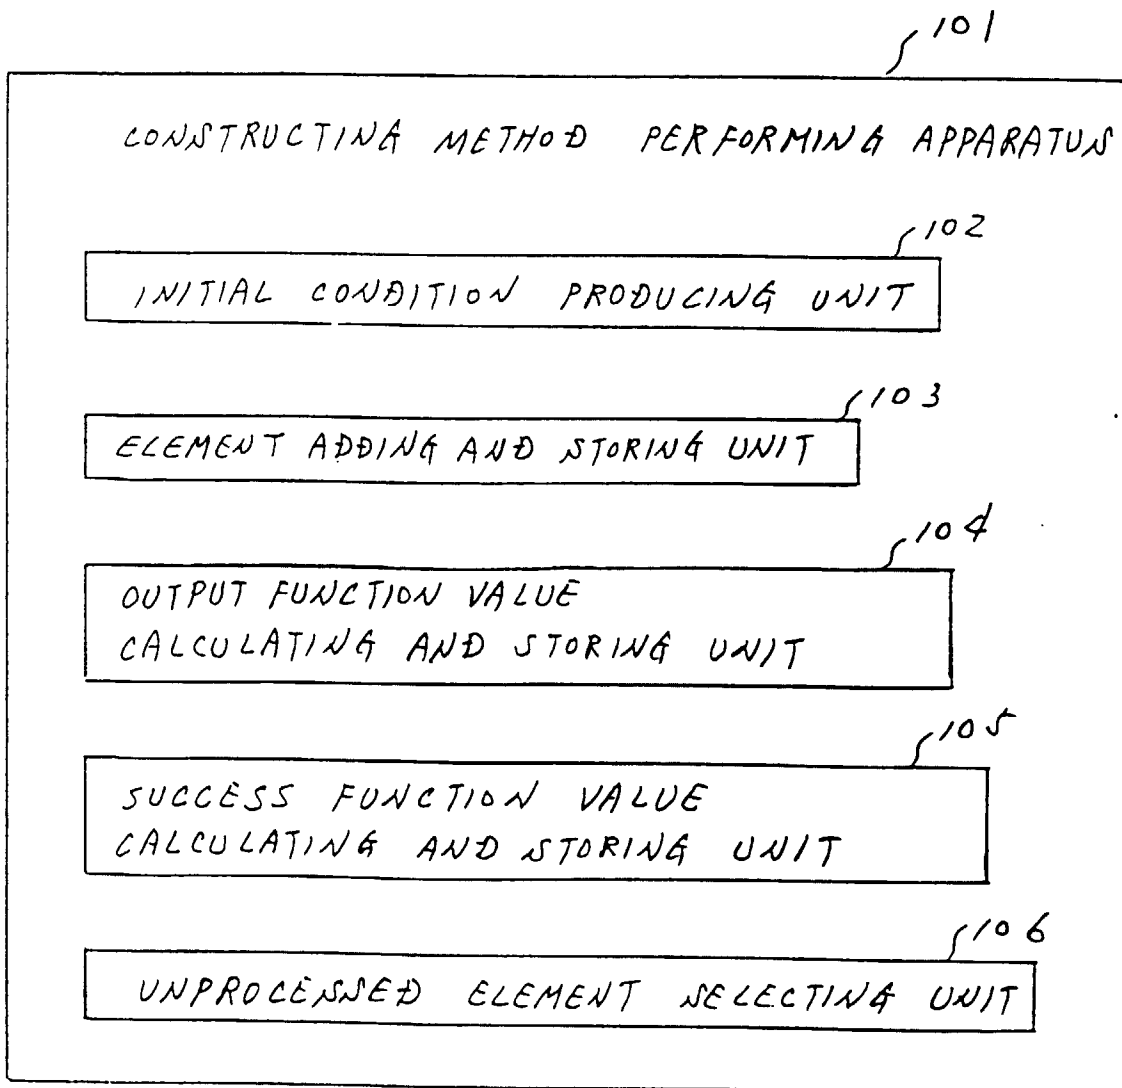 101
CONSTRUCTING METHOD PERFORMING APPARATUS
102
INITIAL CONDITION PRODUCING UNIT
103
ELEMENT ADDING AND STORING UNIT
104
OUTPUT FUNCTION VALUE
CALCULATING AND STORING UNIT
105
SUCCESS FUNCTION VALUE
CALCULATING AND STORING UNIT
106
UNPROCESSED ELEMENT SELECTING UNIT